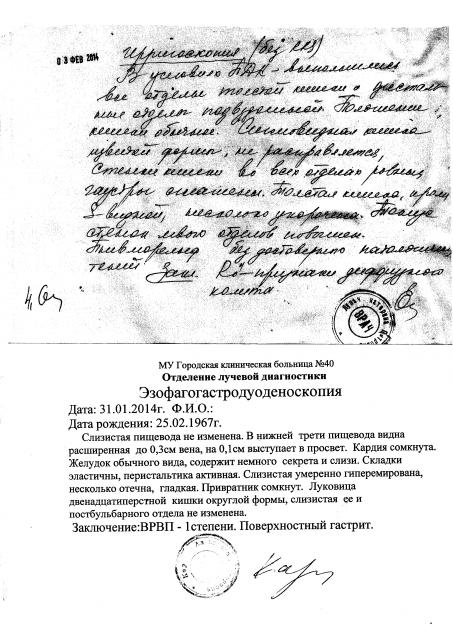 03 ФЕВ 2014
Ирригоскопия (без
В условиях - выполнились
все отделы толстой кишки и дисталь-
ные отделы подвздошной. Положение
кишки обычное. Сигмовидная кишка
формы, не расправляется,
Стенки кишки во всех отделах ровные,
гаустры сглажены. Толстая кишка, кроме
S-видной, несколько укорочена. Тонус
стенок левого отделов повышен.
без достоверно патологич.
Закл. Rö-признаки диффузного
колита.
ВРАЧ
МУ Городская клиническая больница №40
Отделение лучевой диагностики
Эзофагогастродуоденоскопия
Дата: 31.01.2014г. Ф.И.О.:
Дата рождения: 25.02.1967г.
Слизистая пищевода не изменена. В нижней трети пищевода видна
расширенная до 0,3см вена, на 0,1см выступает в просвет. Кардия сомкнута.
Желудок обычного вида, содержит немного секрета и слизи. Складки
эластичны, перистальтика активная. Слизистая умеренно гиперемирована,
несколько отечна, гладкая. Привратник сомкнут. Луковица
двенадцатиперстной кишки округлой формы, слизистая ее и
постбульбарного отдела не изменена.
Заключение:ВРВП - 1степени. Поверхностный гастрит.